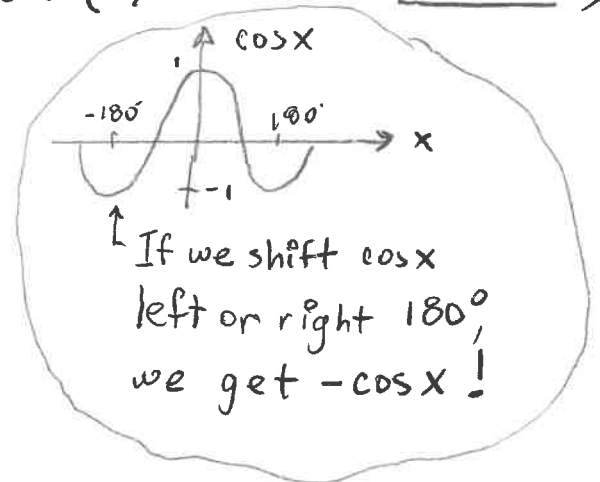 cosx
1
-180°
180°
x
-1
If we shift cosx
left or right 180°,
we get -cosx!